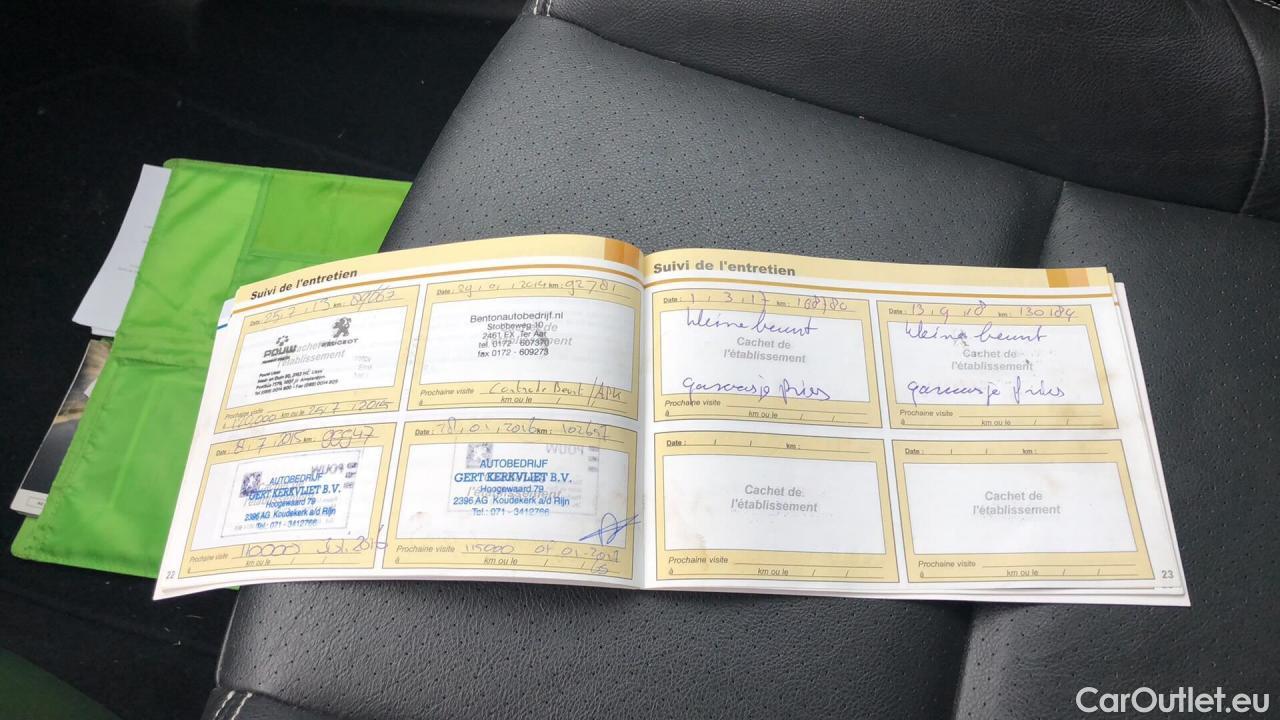 Suivi de l'entretien
Date: 25.7.13 km:
POUW
PEUGEOT
Cachet de
l'établissement
Prochaine visite
à 120.000 km ou le 25/7/2015
Date: 29.01.2014 km: 92781
Bentonautobedrijf.nl
Stobbeweg 10
2461 EX Ter Aar
tel. 0172 - 607370
fax 0172 - 609273
Prochaine visite
à km ou le / /
Date: 8.7.2015 km: 99947
AUTOBEDRIJF
GERT KERKVLIET B.V.
Hoogewaard 79
2396 AG Koudekerk a/d Rijn
Tel.: 071 - 3412766
Prochaine visite 110000
à km ou le / /
Date: 28.01.2016 km: 102657
AUTOBEDRIJF
GERT KERKVLIET B.V.
Hoogewaard 79
2396 AG Koudekerk a/d Rijn
Tel.: 071 - 3412766
Prochaine visite 115000
à km ou le / /
22
Suivi de l'entretien
Date: 1.3.17 km:
kleine beurt
Cachet de
l'établissement
Prochaine visite
à km ou le / /
Date: 13.9.18 km: 130184
kleine beurt
Cachet de
l'établissement
Prochaine visite
à km ou le / /
Date: / / km:
Cachet de
l'établissement
Prochaine visite
à km ou le / /
Date: / / km:
Cachet de
l'établissement
Prochaine visite
à km ou le / /
23
CarOutlet.eu